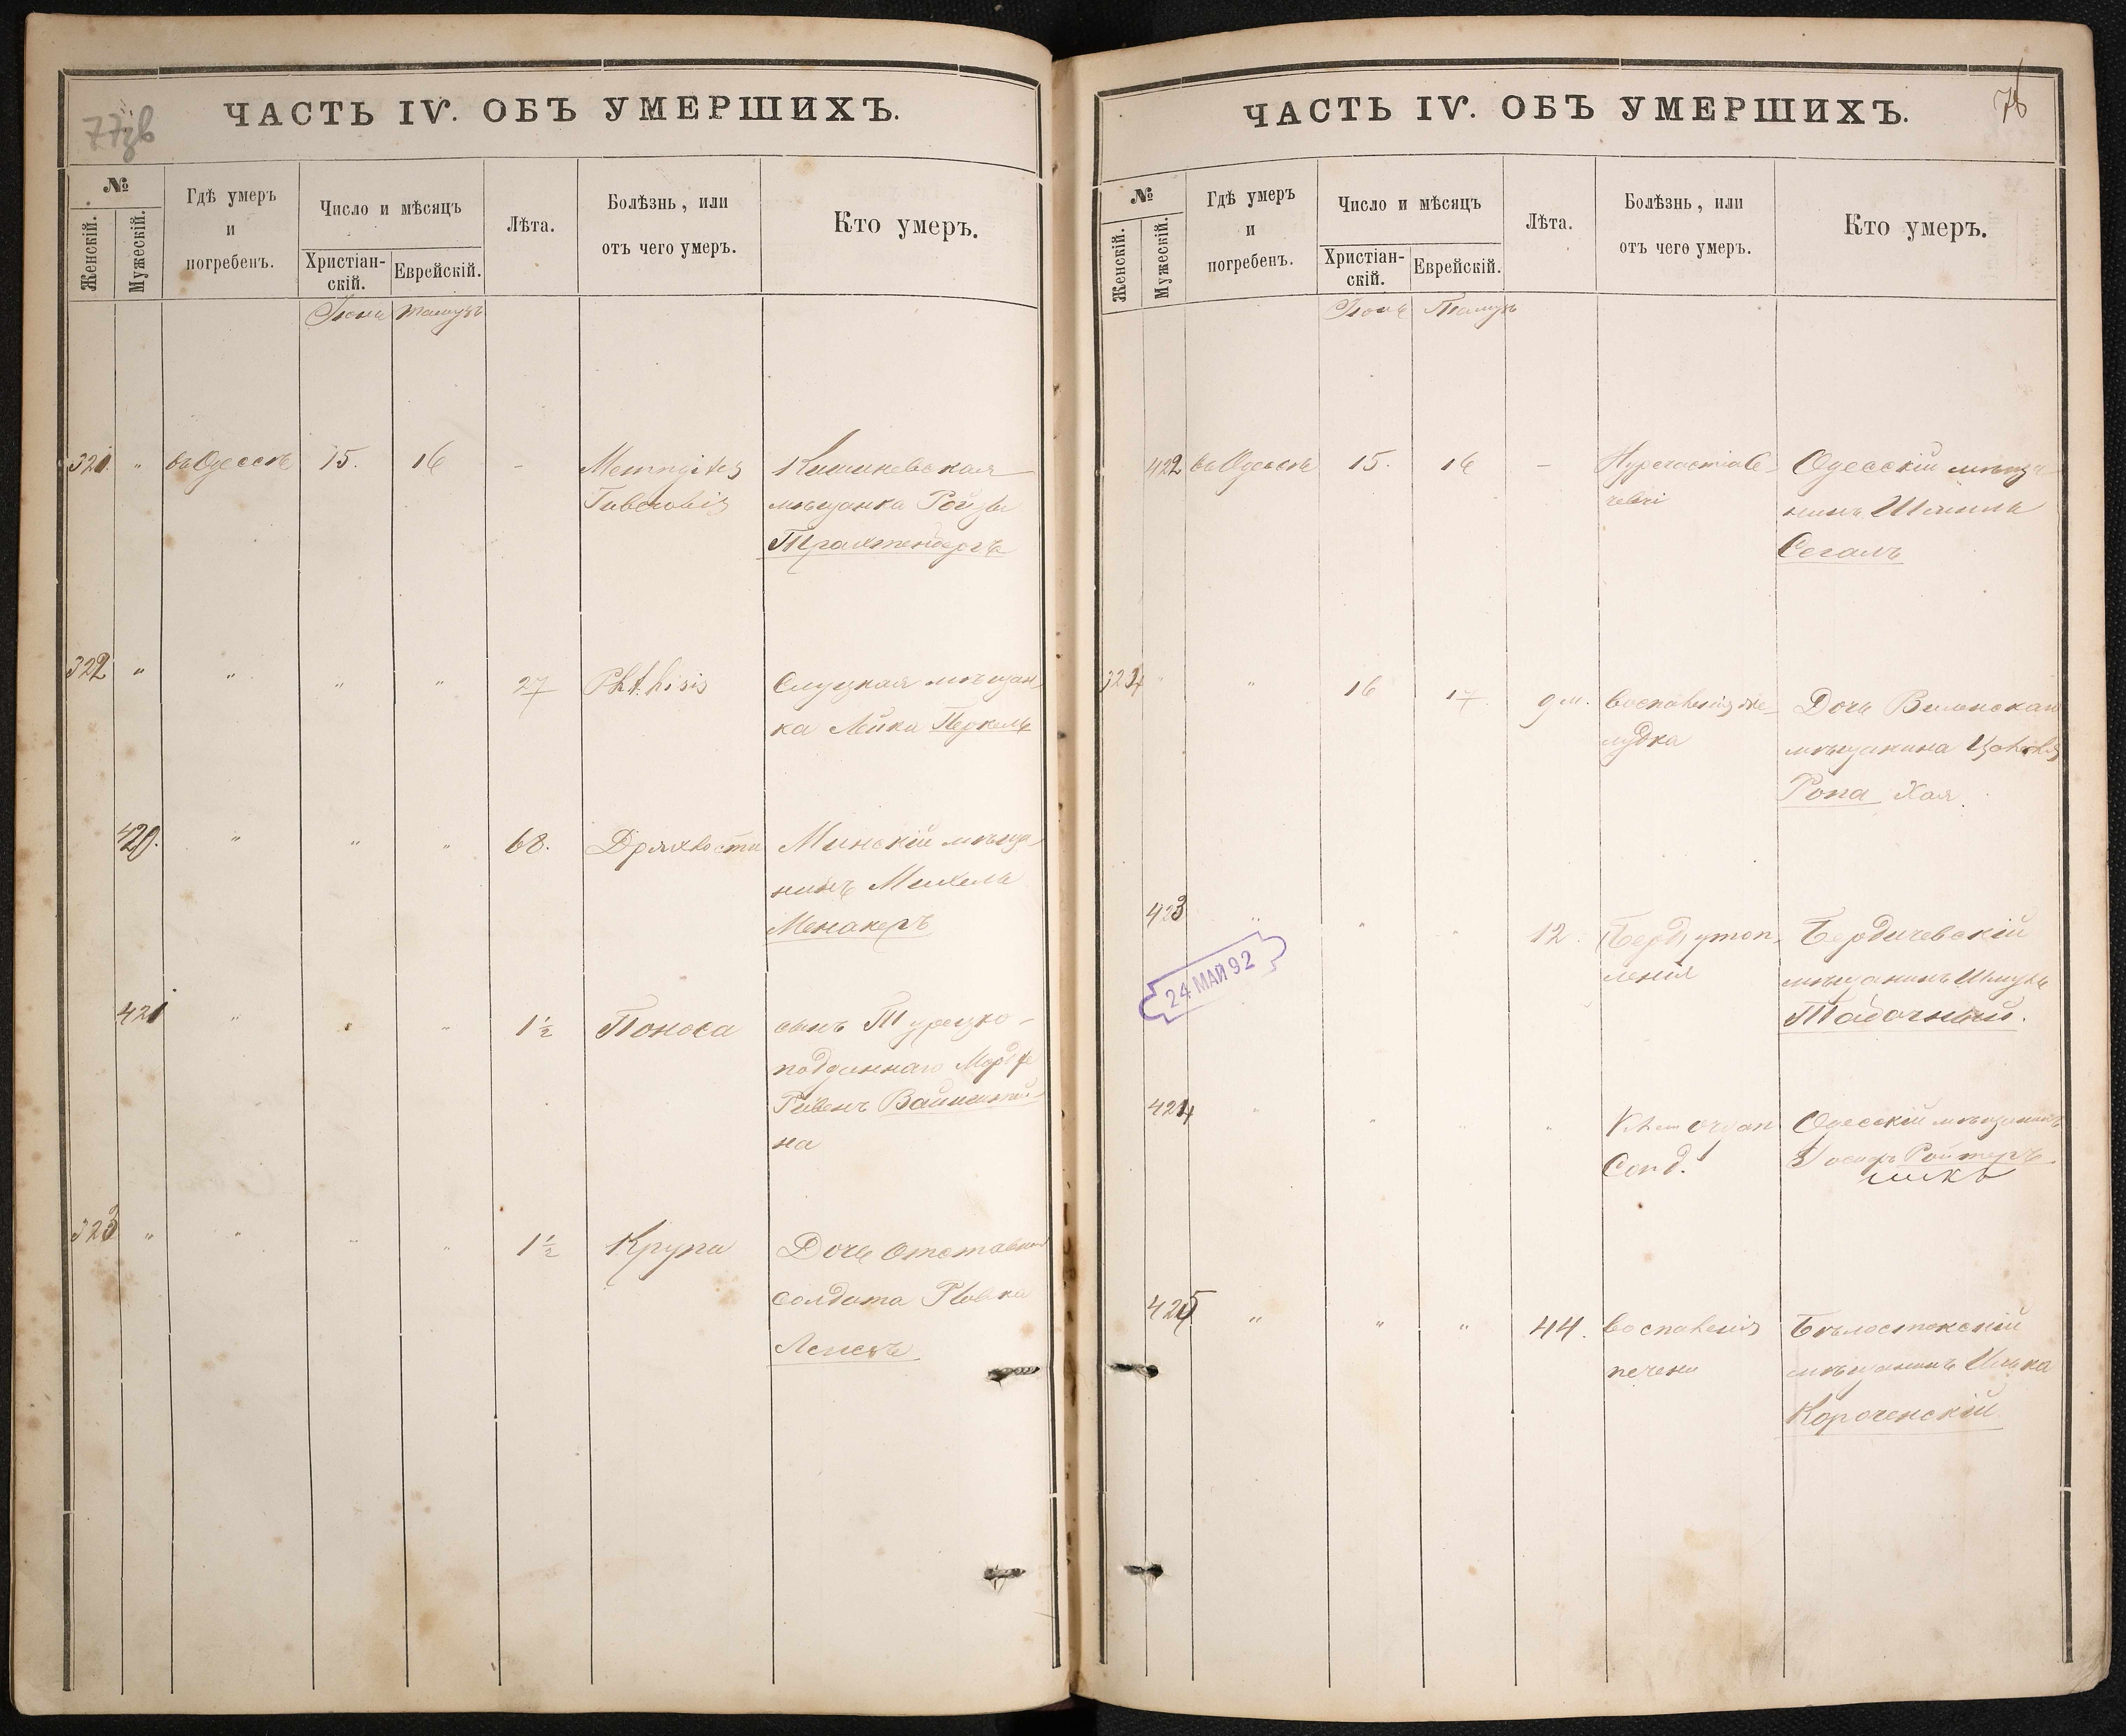 77зв
ЧАСТЬ IV. ОБЪ УМЕРШИХЪ.
№
Женскій.
Мужескій.
Гдѣ умеръ
и
погребенъ.
Число и мѣсяцъ
Христіан-
скій.
Еврейскій.
Лѣта.
Болѣзнь, или
отъ чего умеръ.
Кто умеръ.
Іюнь Тамузъ
321 " въ Одессѣ 15. 16 - Кишиневская
мѣщанка Ройза
Трахтенбергъ
322 " " " " 27 Phthisis Слуцкая мѣщан-
ка Лейка Перкель
420. " " " 68. Дряхлости Минскій мѣща-
нинъ Михель
Менакеръ
421 " " " 1½ Поноса сынъ Турецко-
подданнаго
Вайнштей-
на
323 " " " " 1½ Крупа Дочь отставного
солдата Ривка
ЧАСТЬ IV. ОБЪ УМЕРШИХЪ.
76
№
Женскій.
Мужескій.
Гдѣ умеръ
и
погребенъ.
Число и мѣсяцъ
Христіан-
скій.
Еврейскій.
Лѣта.
Болѣзнь, или
отъ чего умеръ.
Кто умеръ.
Іюнь Тамузъ
422 въ Одессѣ 15. 16 - Одесскій мѣща-
нинъ Шмиль
Сегаль
324 " " 16 17. 9 м. Воспаленія же-
лудка
Дочь Виленскаго
мѣщанина
Ропа Хая.
423 " " " 12. утоп-
ленія
Бердичевскій
мѣщанинъ Шмуль
Табачный.
24 МАЙ 92
424 " " " " organ
Cord.
Одесскій мѣщанинъ
Іосифъ Ройтеръ
425 " " " 44. Воспаленія
печени
Бѣлостокскій
мѣщанинъ Ицка
Короченскій